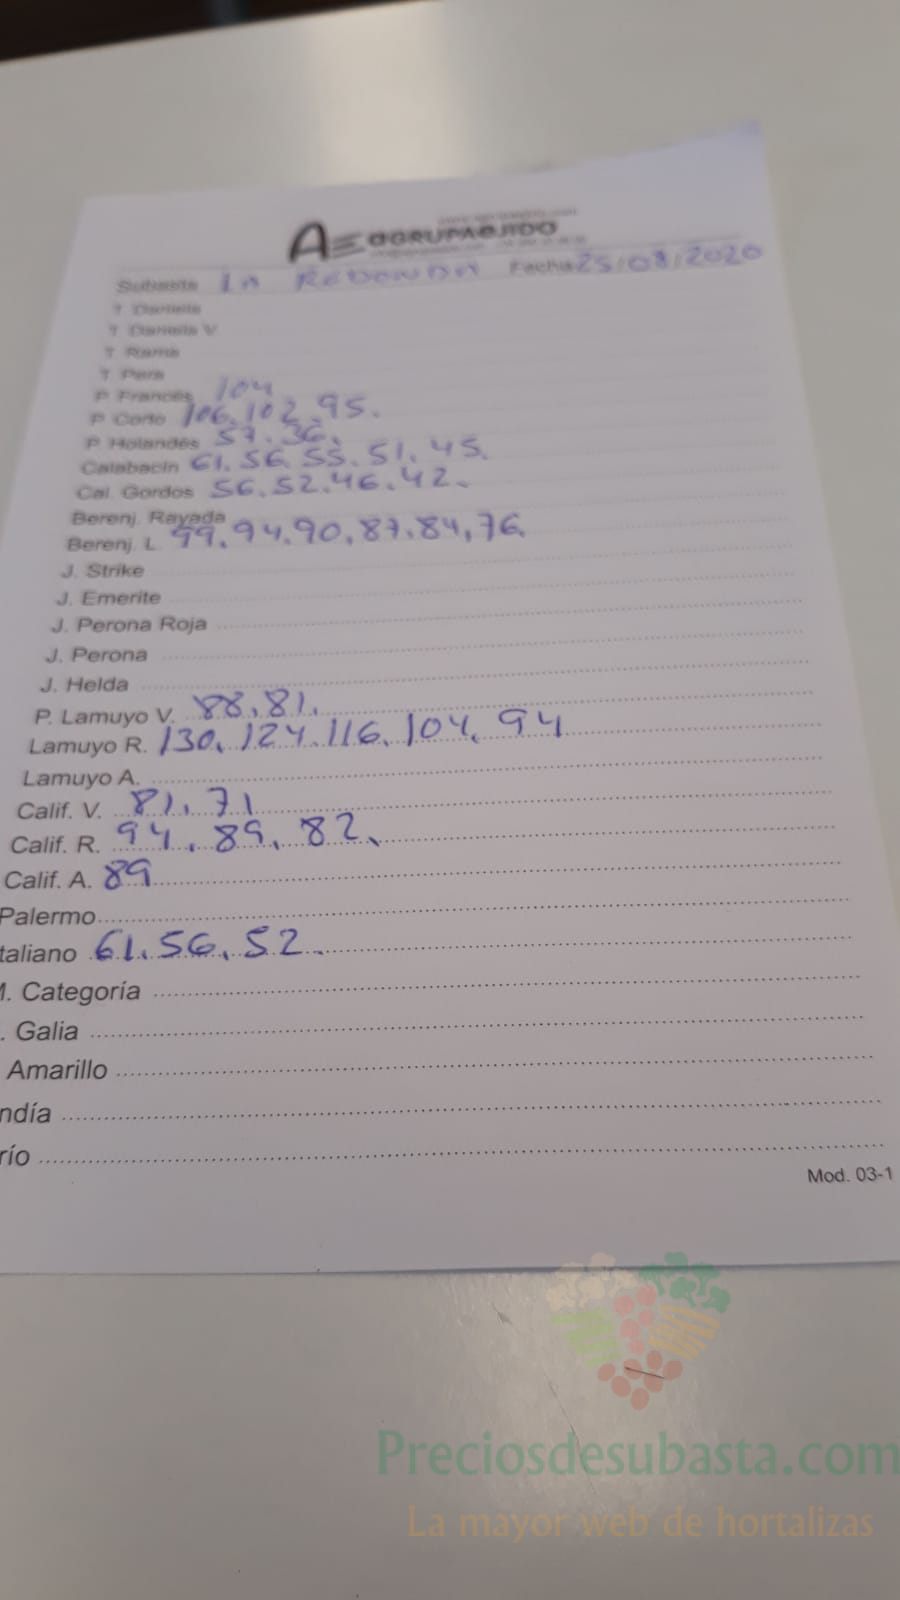 AGRUPAEJIDO
Subasta La REDONDA Fecha 25/08/2020
T Daniela
T Daniela V
T Rama
T Pera
P. Francés 104.
P Corto 106.102.95.
P. Holandés 57.36.
Calabacín 61.56.55.51.45.
Cal. Gordos 56.52.46.42.
Berenj. Rayada
Berenj. L. 99.94.90.87.84.76.
J. Strike
J. Emerite
J. Perona Roja
J. Perona
J. Helda
P. Lamuyo V. 88.81.
Lamuyo R. 130.124.116.104.94
Lamuyo A.
Calif. V. 81.71
Calif. R. 94.89.82.
Calif. A. 89
Palermo
taliano 61.56.52.
M. Categoría
. Galia
Amarillo
ndía
río
Mod. 03-1
Preciosdesubasta.com
La mayor web de hortalizas